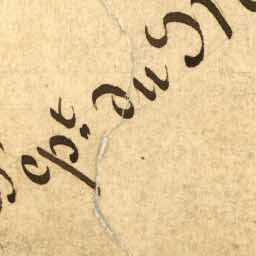 Sept. du